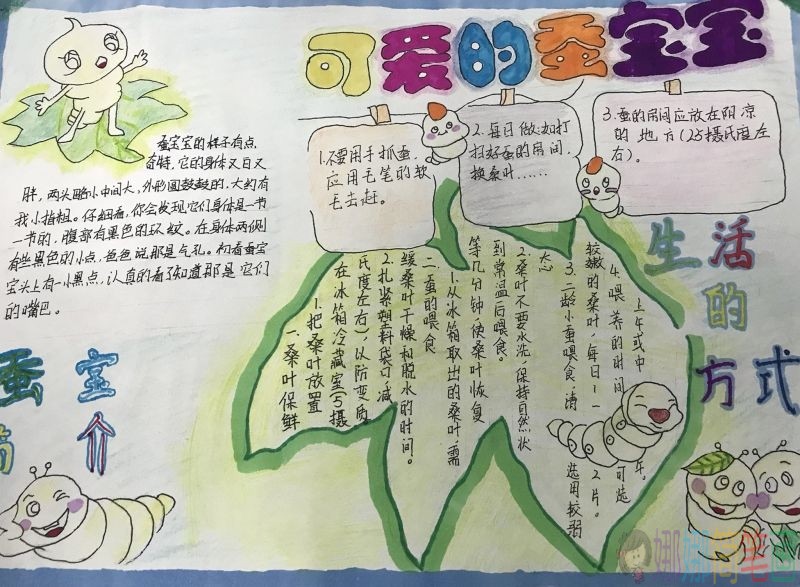 可爱的蚕宝宝
蚕宝宝的样子有点
奇特,它的身体又白又
胖,两头略小中间大,外形圆鼓鼓的,大约有
我小指粗。仔细看,你会发现它们身体是一节
一节的,腹部有黑色的环纹。在身体两侧
有些黑色的小点,爸爸说那是气孔。初看蚕宝
宝头上有一小黑点,认真的看了知道那是它们
的嘴巴。
1.不要用手抓蚕,
应用毛笔的软
毛去赶。
2.每日做:如打
扫好蚕的房间,
换桑叶……
3.蚕的房间应放在阴凉
的地方(25摄氏度左
右)。
蚕宝
简介
生活
的
方式
一、桑叶保鲜
1.把桑叶放置
在冰箱冷藏室(5摄
氏度左右),以防变质
2.扎紧塑料袋口,减
缓桑叶干燥和脱水的时间。
二、蚕的喂食
1.从冰箱取出的桑叶,需
等几分钟,使桑叶恢复
到常温后喂食。
2.桑叶不要水洗,保持自然状
态
3.二龄小蚕喂食,请选用较弱
较嫩的桑叶,每日1-2片。
4.喂养的时间可选
上午或中午。
娜娜简笔画